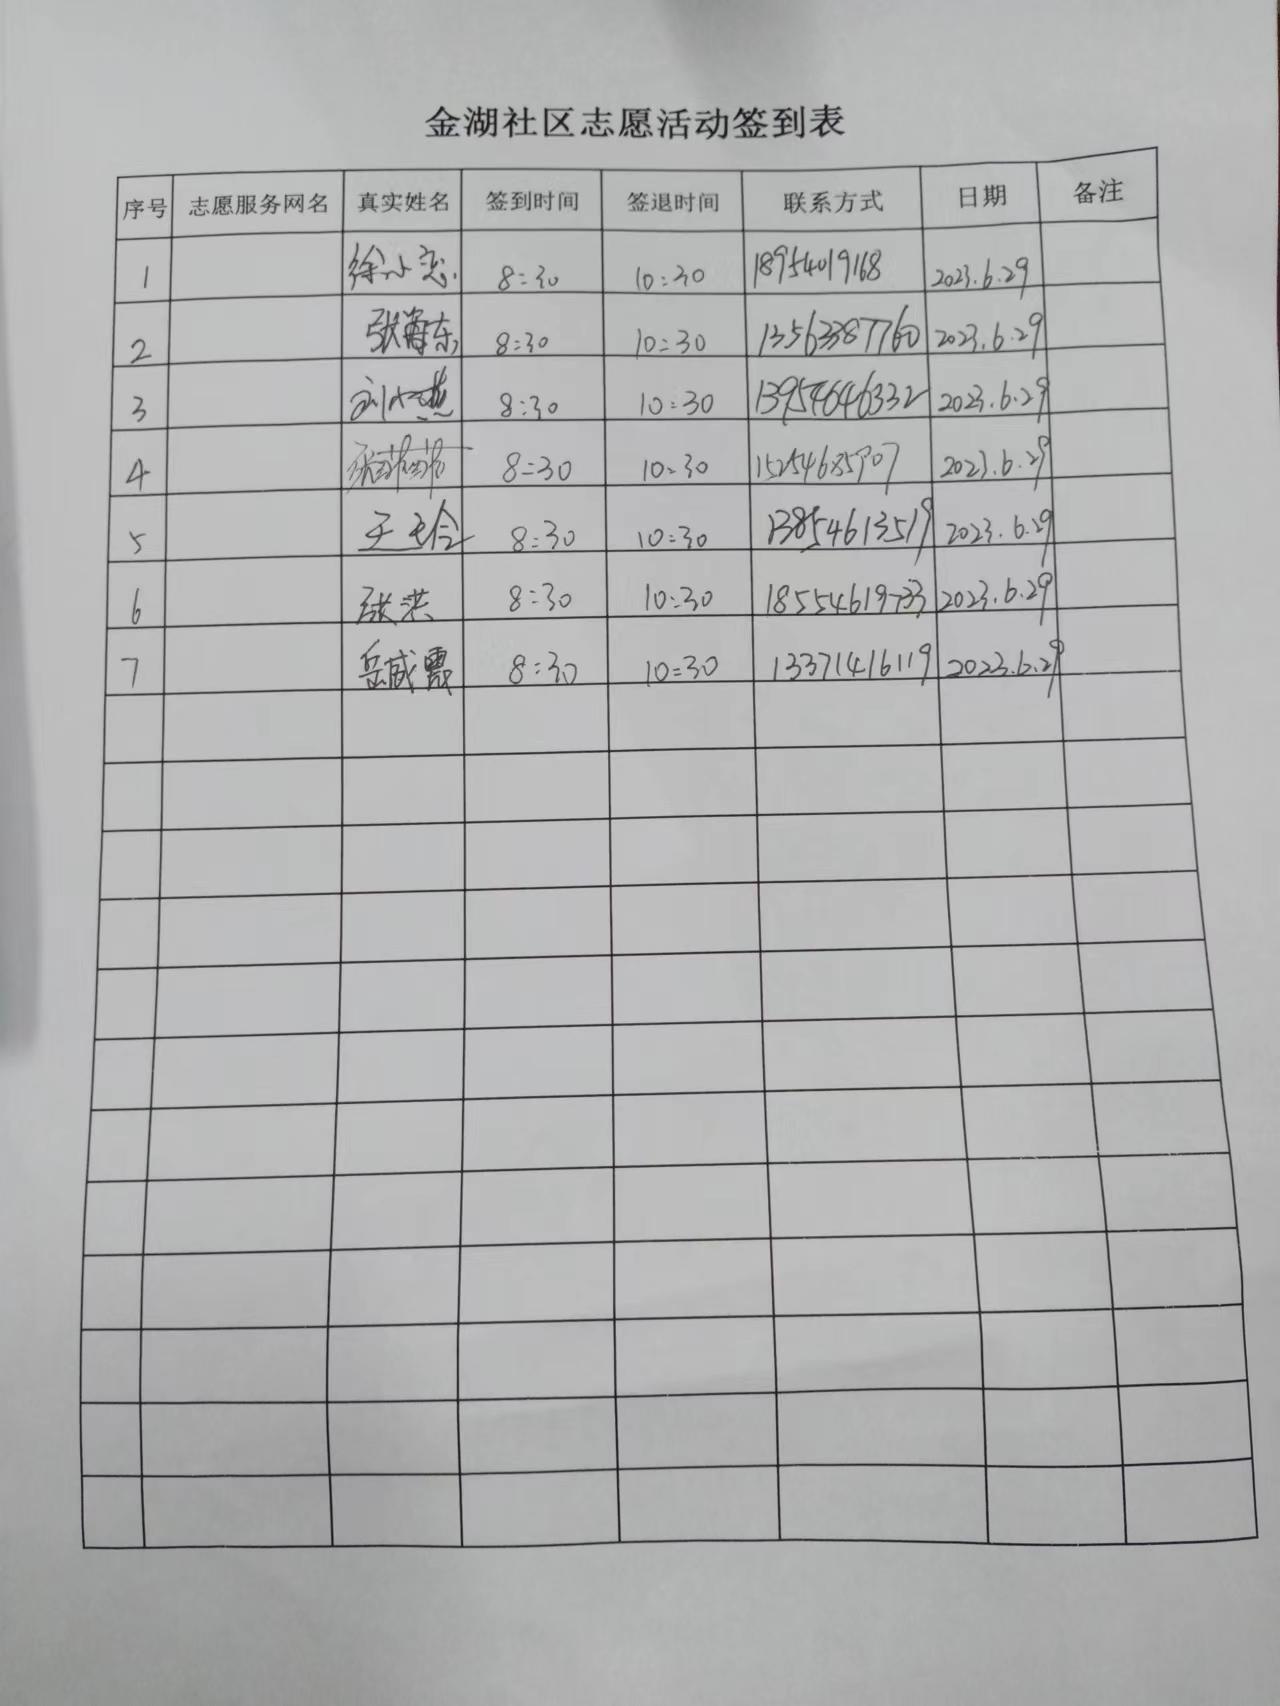 金湖社区志愿活动签到表
序号 志愿服务网名 真实姓名 签到时间 签退时间 联系方式 日期 备注
1 徐小恋 8:30 10:30 18954019168 2023.6.29
2 张海东 8:30 10:30 13563387760 2023.6.29
3 刘小燕 8:30 10:30 13954646332 2023.6.29
4 张苗苗 8:30 10:30 2023.6.29
5 8:30 10:30 13854613519 2023.6.29
6 张洪 8:30 10:30 18554619733 2023.6.29
7 岳咸霞 8:30 10:30 13371416119 2023.6.29